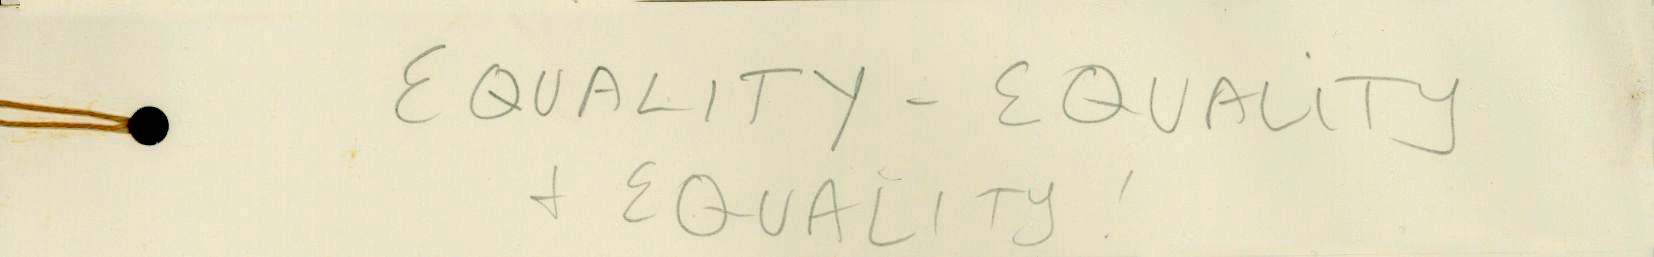 EQUALITY - EQUALITY
+ EQUALITY!